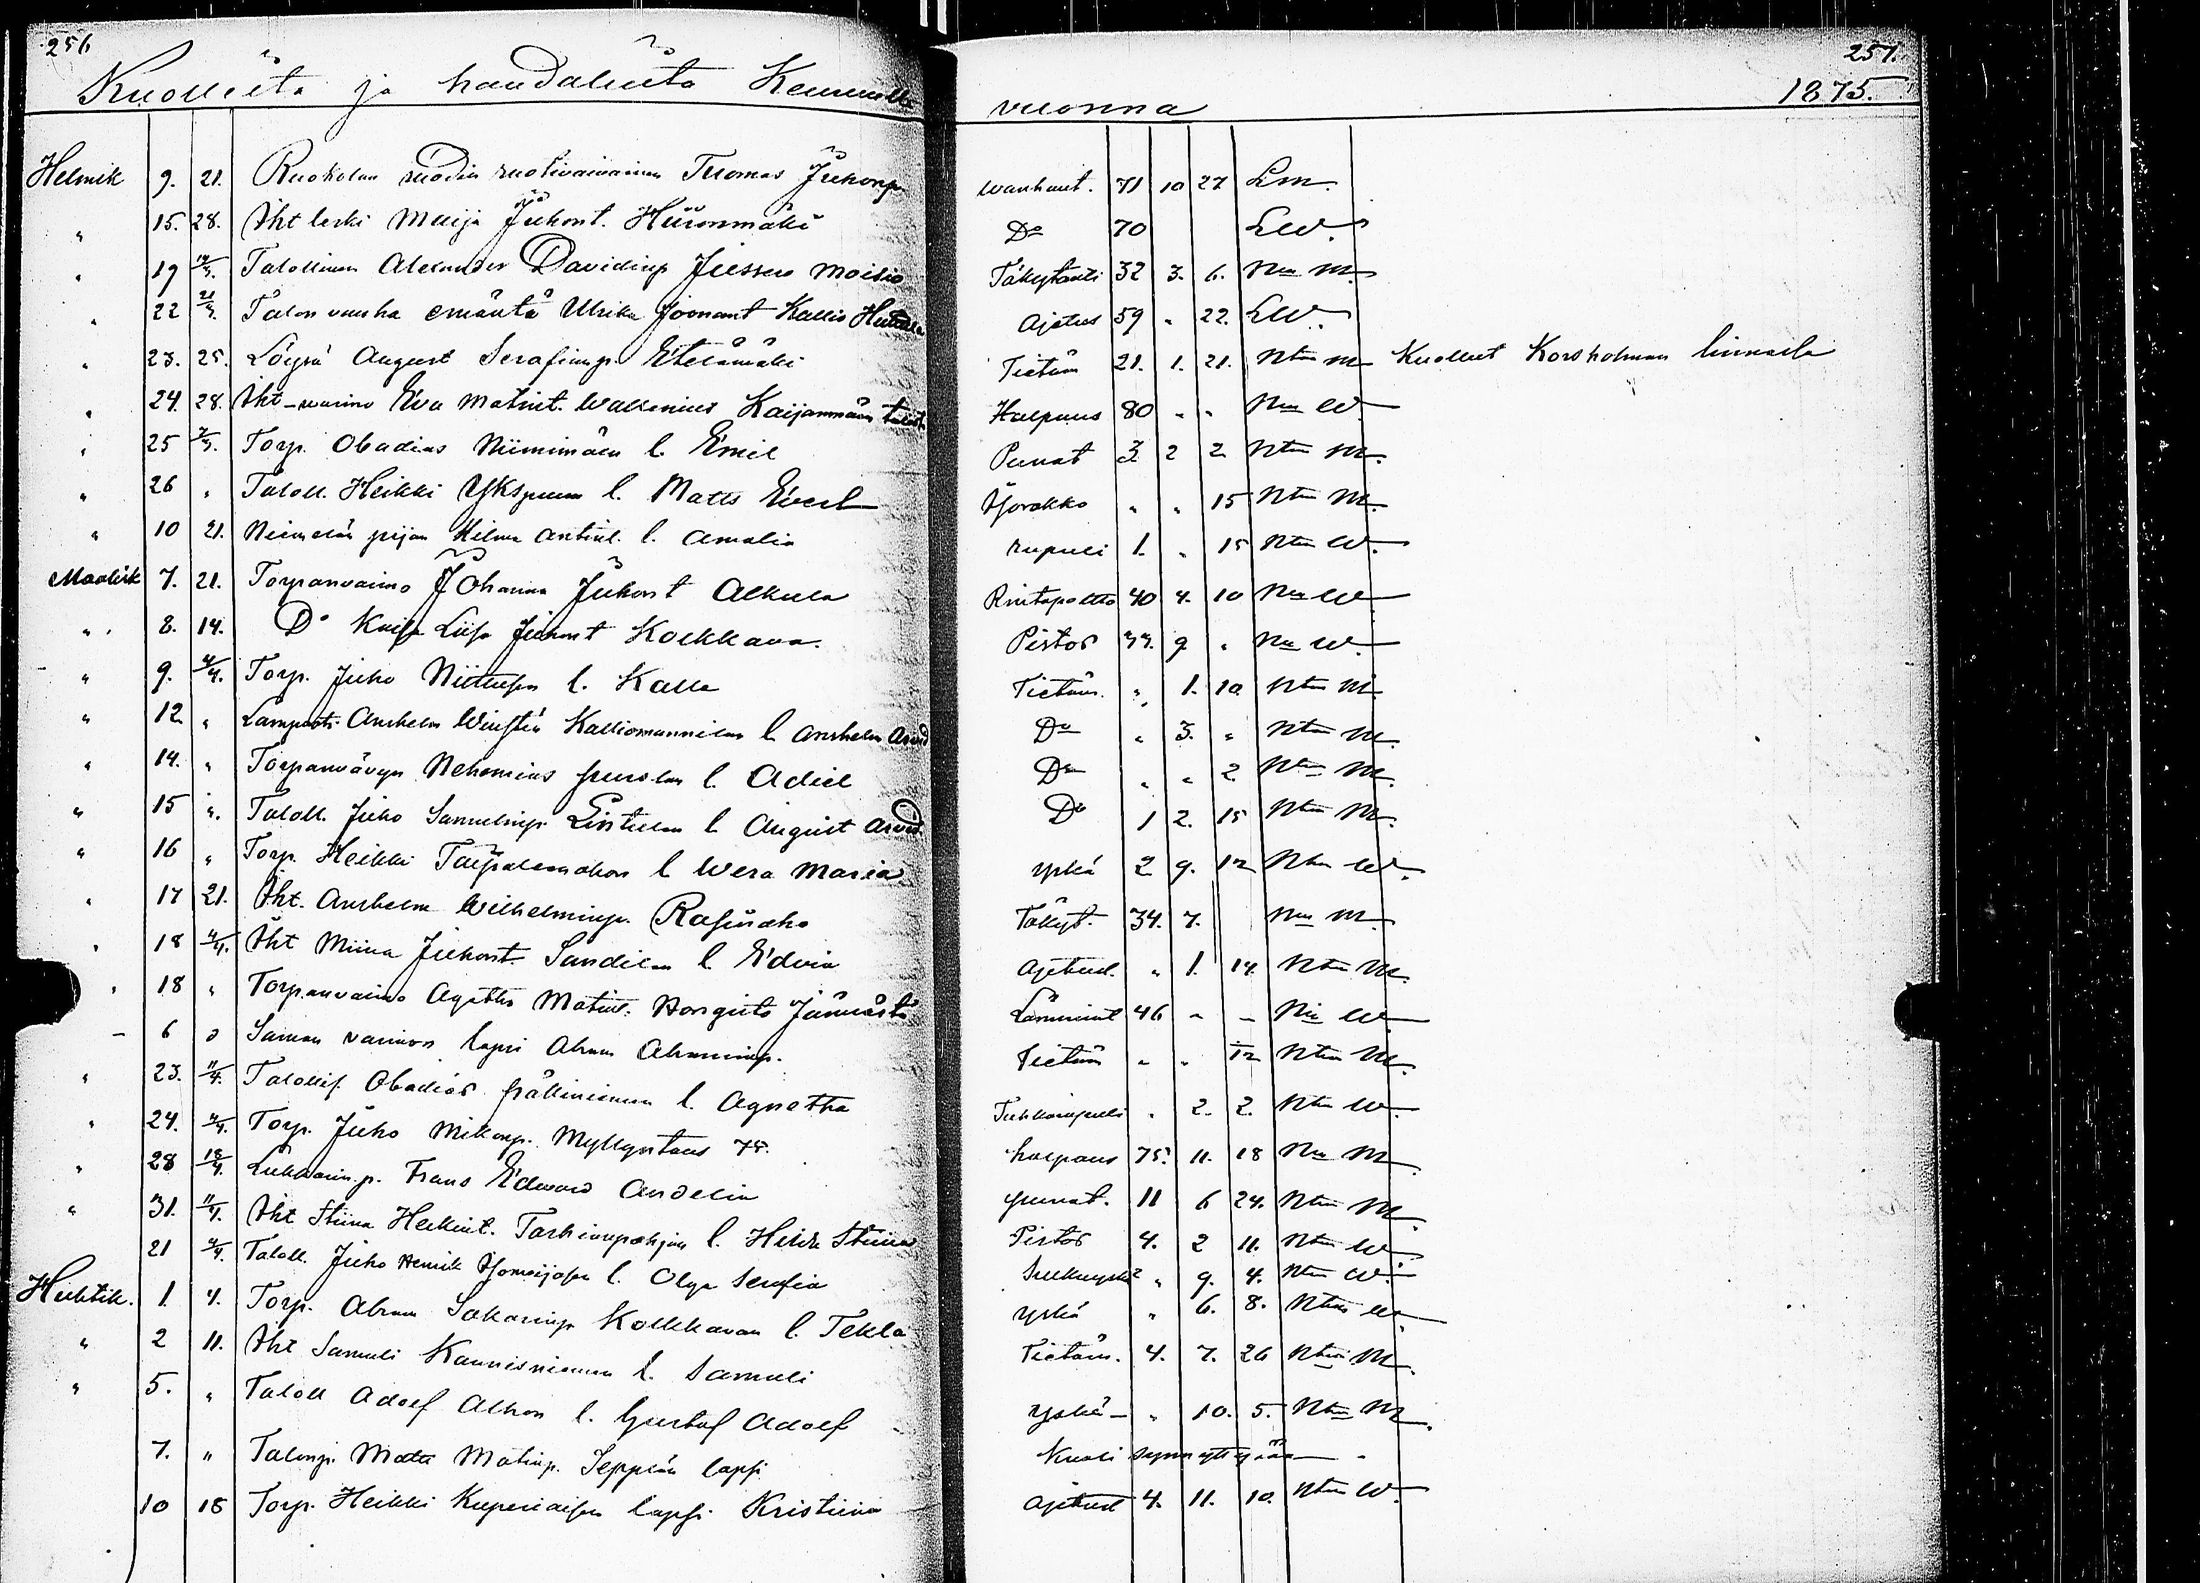 256 257.
Kuolleita ja haudatuita Keuruulla vuonna 1875.
Helmik 9. 21. Ruokolan ruodin ruotivaivainen Tuomas Juhonp. wanhuut. 71 10 27 Lm.
" 15. 28. Iht leski Maija Juhont. Hiironmäki Do 70 LW.
" 19 14/3. Talollinen Alexander Davidinp Jussens Moisio Täkytauti 32 3. 6. Nm M.
" 22 21/3. Talon vanha emäntä Ulrika Joonant Kallio Huttula Ajetus 59 " 22. LW.
" 23. 25. Löysä August Serafinp. Etelämäki Tietäm 21. 1. 21. Ntm M Kuollut Korsholman linnaila
" 24. 28. Iht-waimo Eva Matint. Wallenius Kaijanmäen Halpaus 80 " " Nm W.
" 25 7/3. Torp. Obadias Niinimäen l. Emil Punat 3 2 2 Ntm M.
" 26 " Taloll. Heikki Ykspuun l. Matts Evert Ajorokko " " 15 Ntm M.
" 10 21. Neimelän piian Hilma Antint. l. Amalia rupuli 1. " 15 Ntm W.
Maalisk 7. 21. Torpanvaimo Johanna Juhont Alkula Rintapoltto 40 4. 10 Nm W
" 8. 14. Do Kaisa Liisa Juhont Kolkkava. Pistos 33. 9 " Nm W.
" 9. 4/4. Torp. Juho Niittusen l. Kalle Tietäm. " 1. 10. Ntm M
" 12. " Lampuoti Anshelm Kalliomannilan l. Anshelm Arvid Do " 3. " Ntm M.
" 14. " Torpanvävyn Nehemias Jussilan l. Adiel Do " " 2 Ntm M.
" 15 " Taloll. Juho Samulinp. Lintulan l. August Arvid. Do 1 2. 15 Ntm M.
" 16 " Torp. Heikki Taipaleenahon l Wera Maria yskä 2 9. 12 Ntm W.
" 17 21. Iht. Anshelm Wilhelminp. Rasinaho Täkyt. 34. 7. Nm M.
" 18 4/4. Iht Miina Juhont. Sandilan l Edvin Ajetud. " 1. 14. Ntm M.
" 18 " Torpanvaimo Agatha Matint. Jämsästä Lämmint 46 - - Nm W
- 6 " Saman vaimon lapsi Abram Abraminp. Tietäm " " 1/2 Ntm M.
" 23. 11/4. Talollis. Obadias l. Agnetha Tuhkarupuli " 2. 2. Ntm W.
" 24. 4/4. Torp. Juho Mikonp. Myllyntaus 75. halpaus 75. 11. 18 Nm M
" 28 18/4. Lukkarin p. Frans Edward Andelin punat. 11 6 24. Ntm M
" 31. 11/4. Iht Stiina Heikint. Tarhianpohjan l. Heddi Stiina Pistos 4. 2 11. Ntm W
21 4/4. Taloll. Juho Henrik l. Olga Serafia " 9. 4. Ntm W.
Huhtik. 1. 4. Torp. Abram Sakarinp Kolkkavan l. Tekla yskä " 6. 8. Ntm W
" 2 11. Iht Samuli Kaunisniemen l. Samuli Tietäm. 4. 7. 26 Ntm M.
" 5. " Taloll Adolf Alhon l. Gustaf Adolf yskä - " 10. 5. Ntm M.
7. " Talonp. Matti Matinp. Seppälän lapsi Kuoli synnyttyään
10 18 Torp. Heikki Kuperiaisen lapsi Kristiina Ajetud 4. 11. 10. Ntm W.